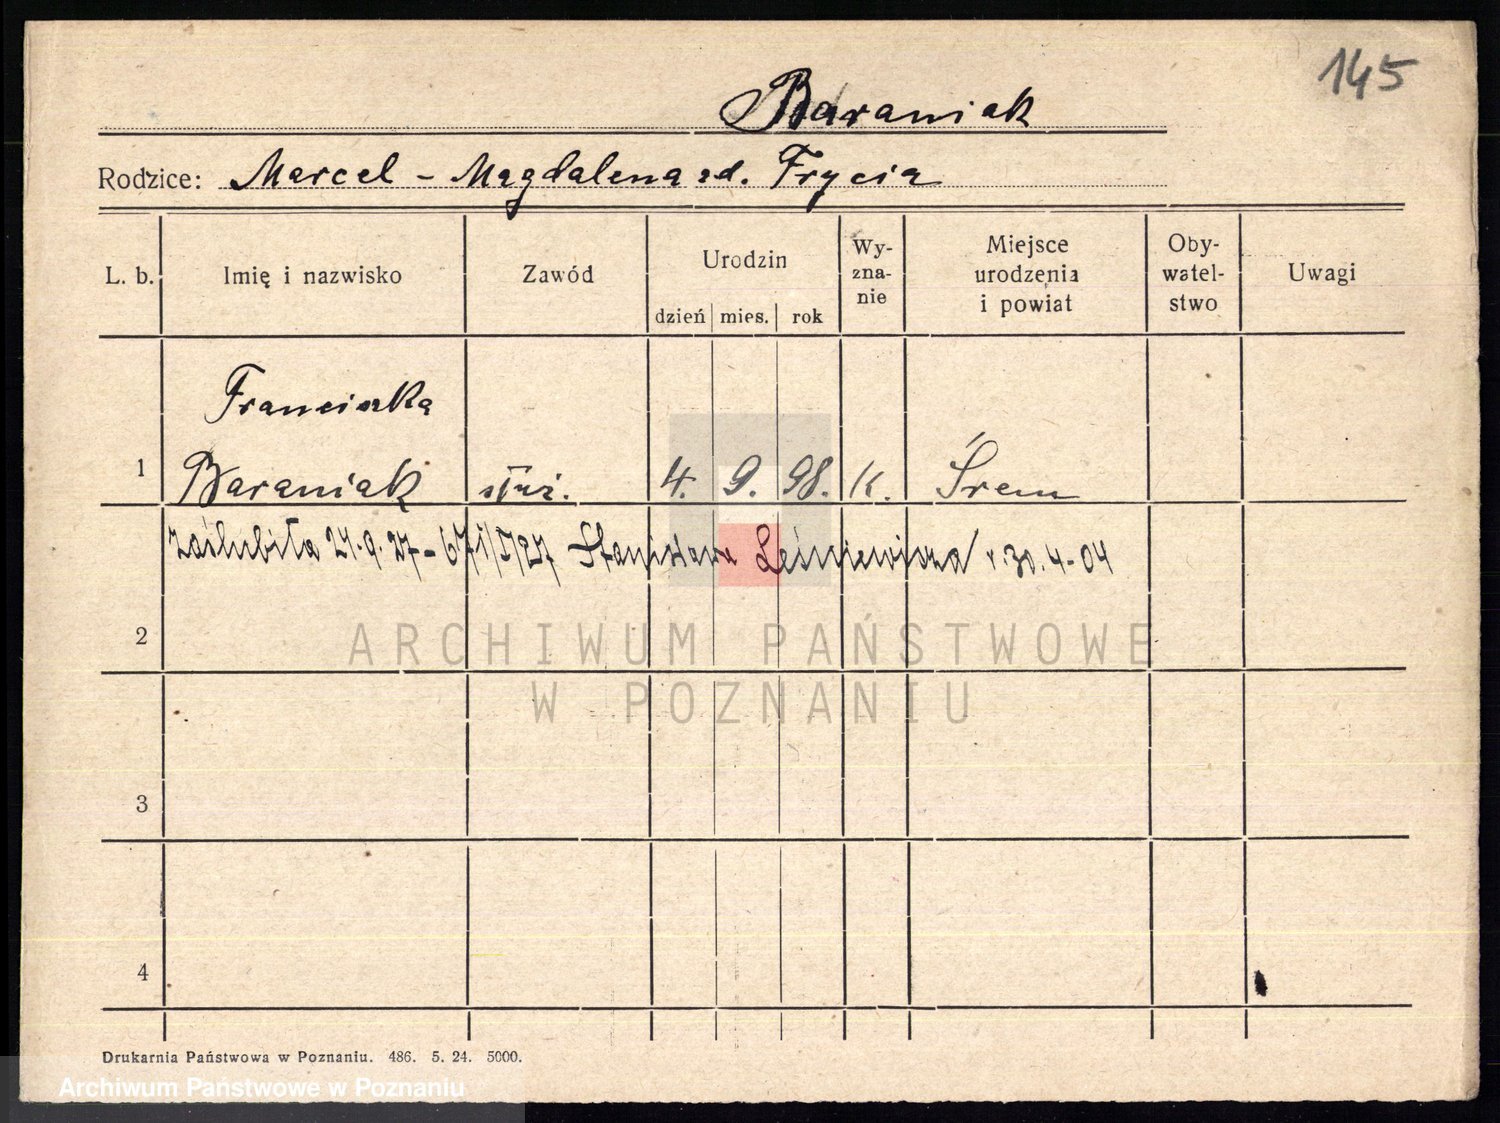 145
Baraniak
Rodzice: Marcel - Magdalena zd. Frycia
L. b. Imię i nazwisko Zawód Urodzin dzień mies. rok Wy-zna-nie Miejsce urodzenia i powiat Oby-watel-stwo Uwagi
Franciszka
1 Baraniak służ. 4. 9. 98. K. Śrem
zaślubiła 24.9.27 - 671/I/27 Stanisława Leśniewicza r. 30.4-04
2
ARCHIWUM PAŃSTWOWE
W POZNANIU
3
4
Drukarnia Państwowa w Poznaniu. 486. 5. 24. 5000.
Archiwum Państwowe w Poznaniu